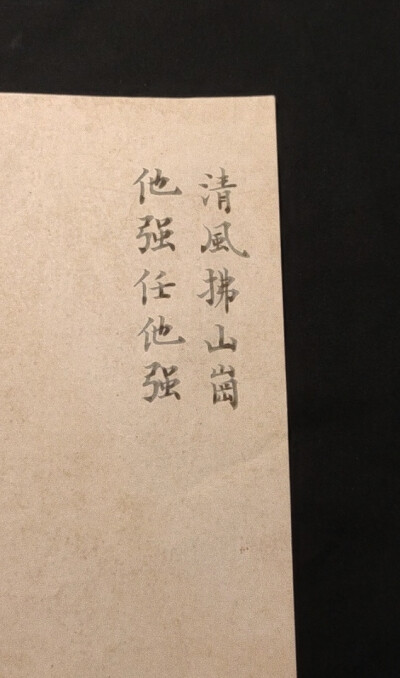 清風拂山崗
他强任他强